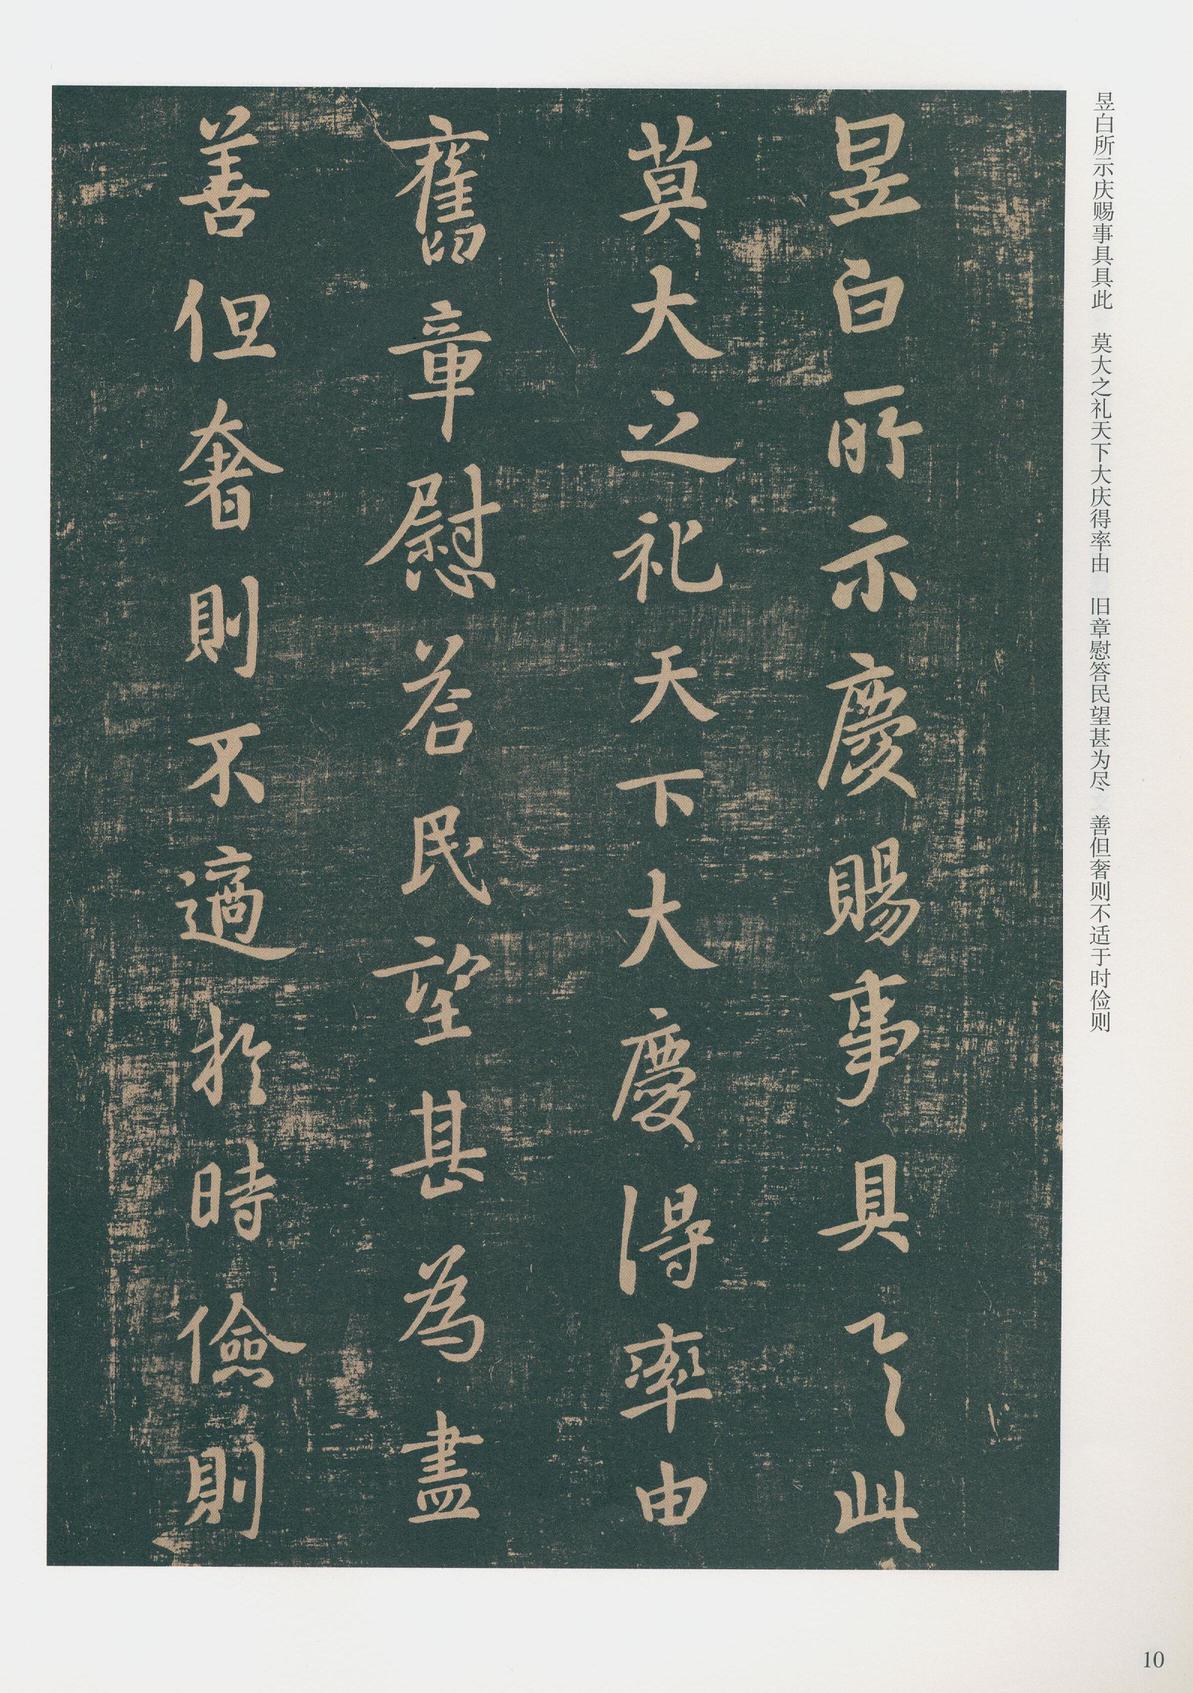 昱白所示庆赐事具具此　莫大之礼天下大庆得率由　旧章慰答民望甚为尽　善但奢则不适于时俭则
昱白所示慶賜事具々此
莫大之礼天下大慶得率由
舊章慰荅民望甚為盡
善但奢則不適於時儉則
10